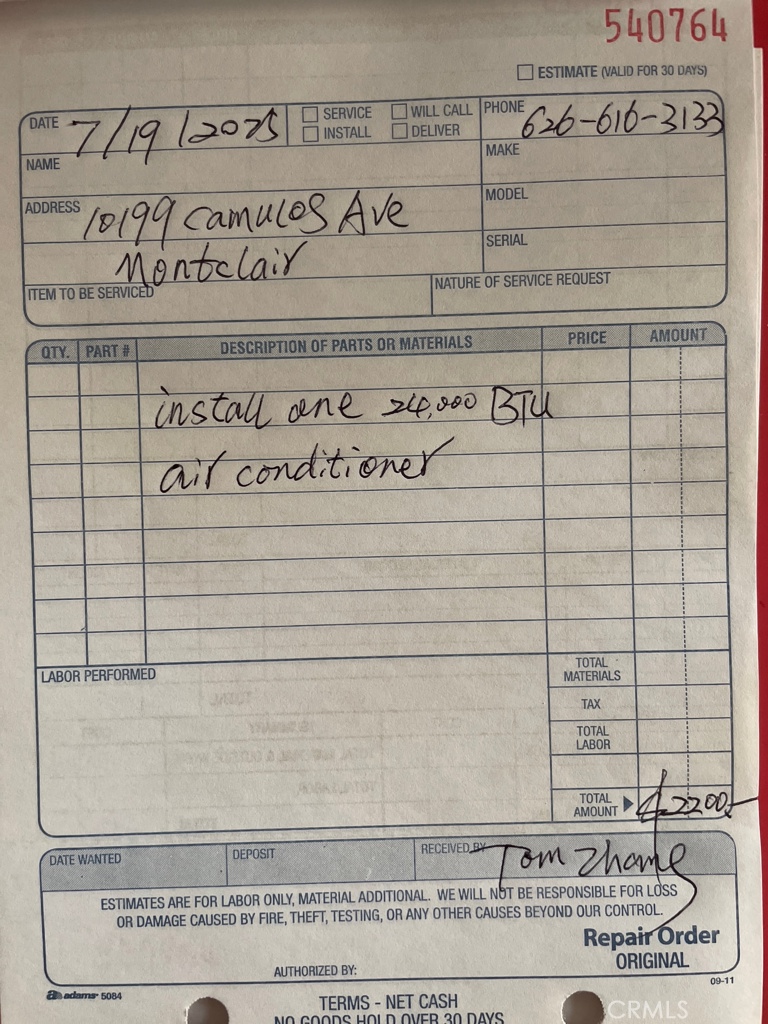 540764
ESTIMATE (VALID FOR 30 DAYS)
DATE 7/19/2025 SERVICE WILL CALL PHONE 626-616-3133
INSTALL DELIVER
NAME MAKE
ADDRESS 10199 camulos Ave MODEL
Montclair SERIAL
ITEM TO BE SERVICED NATURE OF SERVICE REQUEST
QTY. PART # DESCRIPTION OF PARTS OR MATERIALS PRICE AMOUNT
install one 24,000 BTU
air conditioner
LABOR PERFORMED TOTAL MATERIALS
TAX
TOTAL LABOR
TOTAL AMOUNT $2200.-
DATE WANTED DEPOSIT RECEIVED BY Tom Zhang
ESTIMATES ARE FOR LABOR ONLY, MATERIAL ADDITIONAL. WE WILL NOT BE RESPONSIBLE FOR LOSS
OR DAMAGE CAUSED BY FIRE, THEFT, TESTING, OR ANY OTHER CAUSES BEYOND OUR CONTROL.
Repair Order
ORIGINAL
AUTHORIZED BY:
09-11
adams 5084
TERMS - NET CASH
NO GOODS HOLD OVER 30 DAYS
CRMLS